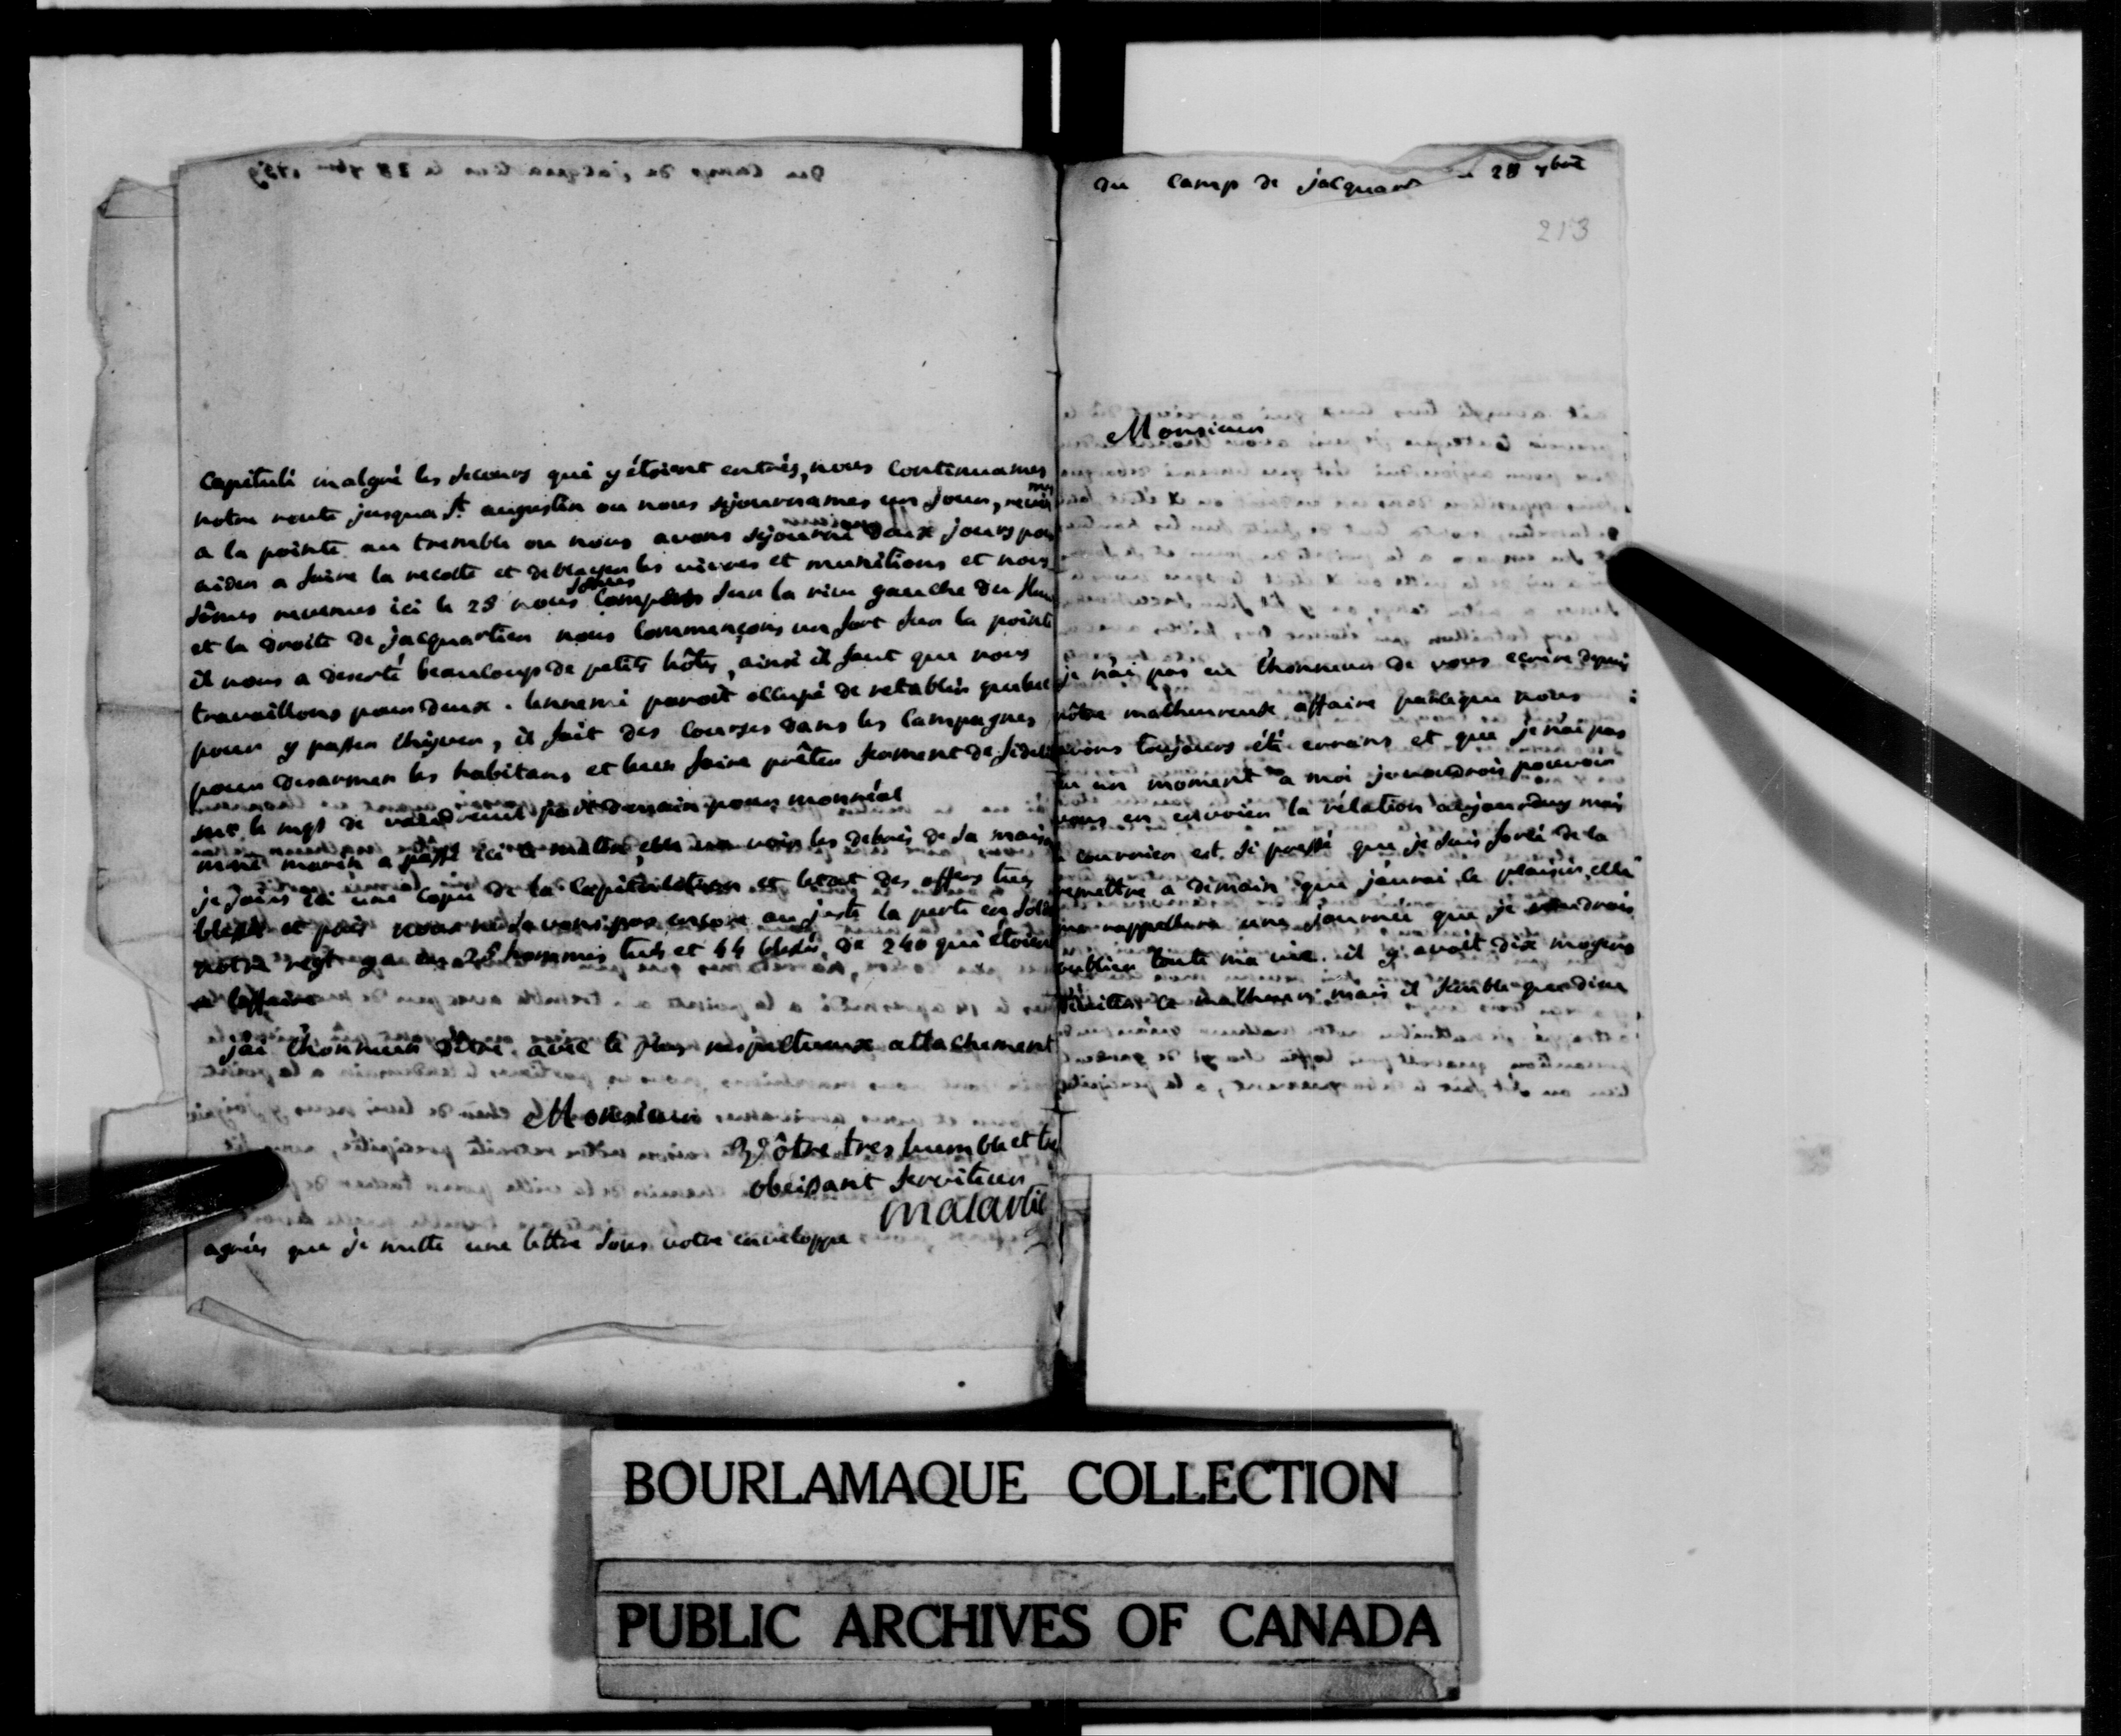 capitulé malgré les secours qui y étoient entrés, nous continuames
notre route jusqua St augustin ou nous sejournames un jour,
a la pointe au tremble ou nous avons sejourné deux jours pour
aider a faire la recolte et deblayer les vivres et munitions et nous
sômes revenus ici le 25 nous campons sur la rive gauche du
et la droite de jacquartier nous commençons un fort sur la pointe
il nous a deserté beaucoup de petits hôtes, ainsi il faut que nous
travaillons pour deux. lennemi paroit occupé de retablir quebec
pour y passer lhyver, il fait des courses dans les campagnes
pour desarmer les habitans et leur faire prêter serment de fidelité
mr le mqs de vaudreuil part demain pour monréal
marin a passé ici ce matin, elle va voir les debris de sa maison
je joins ici une copie de la capitulation et letat des offers tués
blessés et pris nous ne savons pas encore au juste la perte en
notre regt y a eu 25 hommes tués et 44 blessés de 240 qui étoient
a laffaire
jai lhonneur dêtre avec le plus respectueux attachement
Monsieur
Vôtre tres humble et
obeissant serviteur
malartic
agrées que je mette une lettre sous votre enveloppe
du camp de 28 7bre
213
Monsieur
je nai pas eu lhonneur de vous ecrire depuis
nôtre malheureuse affaire parceque nous
avons toujours été errans et que je nai pas
eu un moment a moi je voudrois pouvoir
vous en envoier la rélation aujourduy mais
le courrier est si pressé que je suis forcé de la
remettre a demain que jaurai le plaisir, elle
me rappellera une journée que je voudrois
oublier toute ma vie. il y avoit dix moyens
ce malheur mais il semble que dieu
BOURLAMAQUE COLLECTION
PUBLIC ARCHIVES OF CANADA